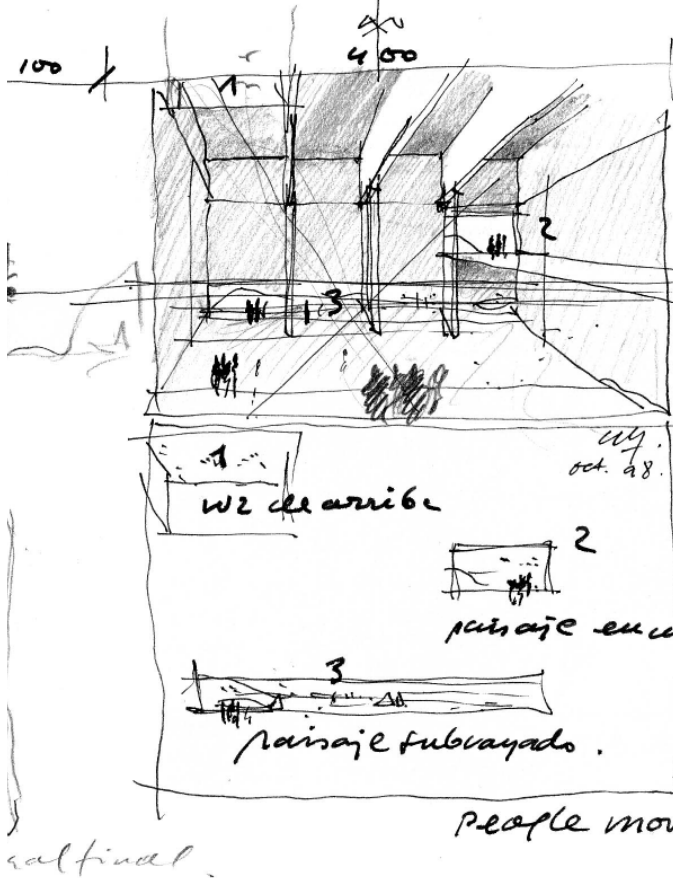 100
400
1
2
3
oct. 98.
1
luz de arriba
2
paisaje en
3
paisaje subrayado.
people mov
al final